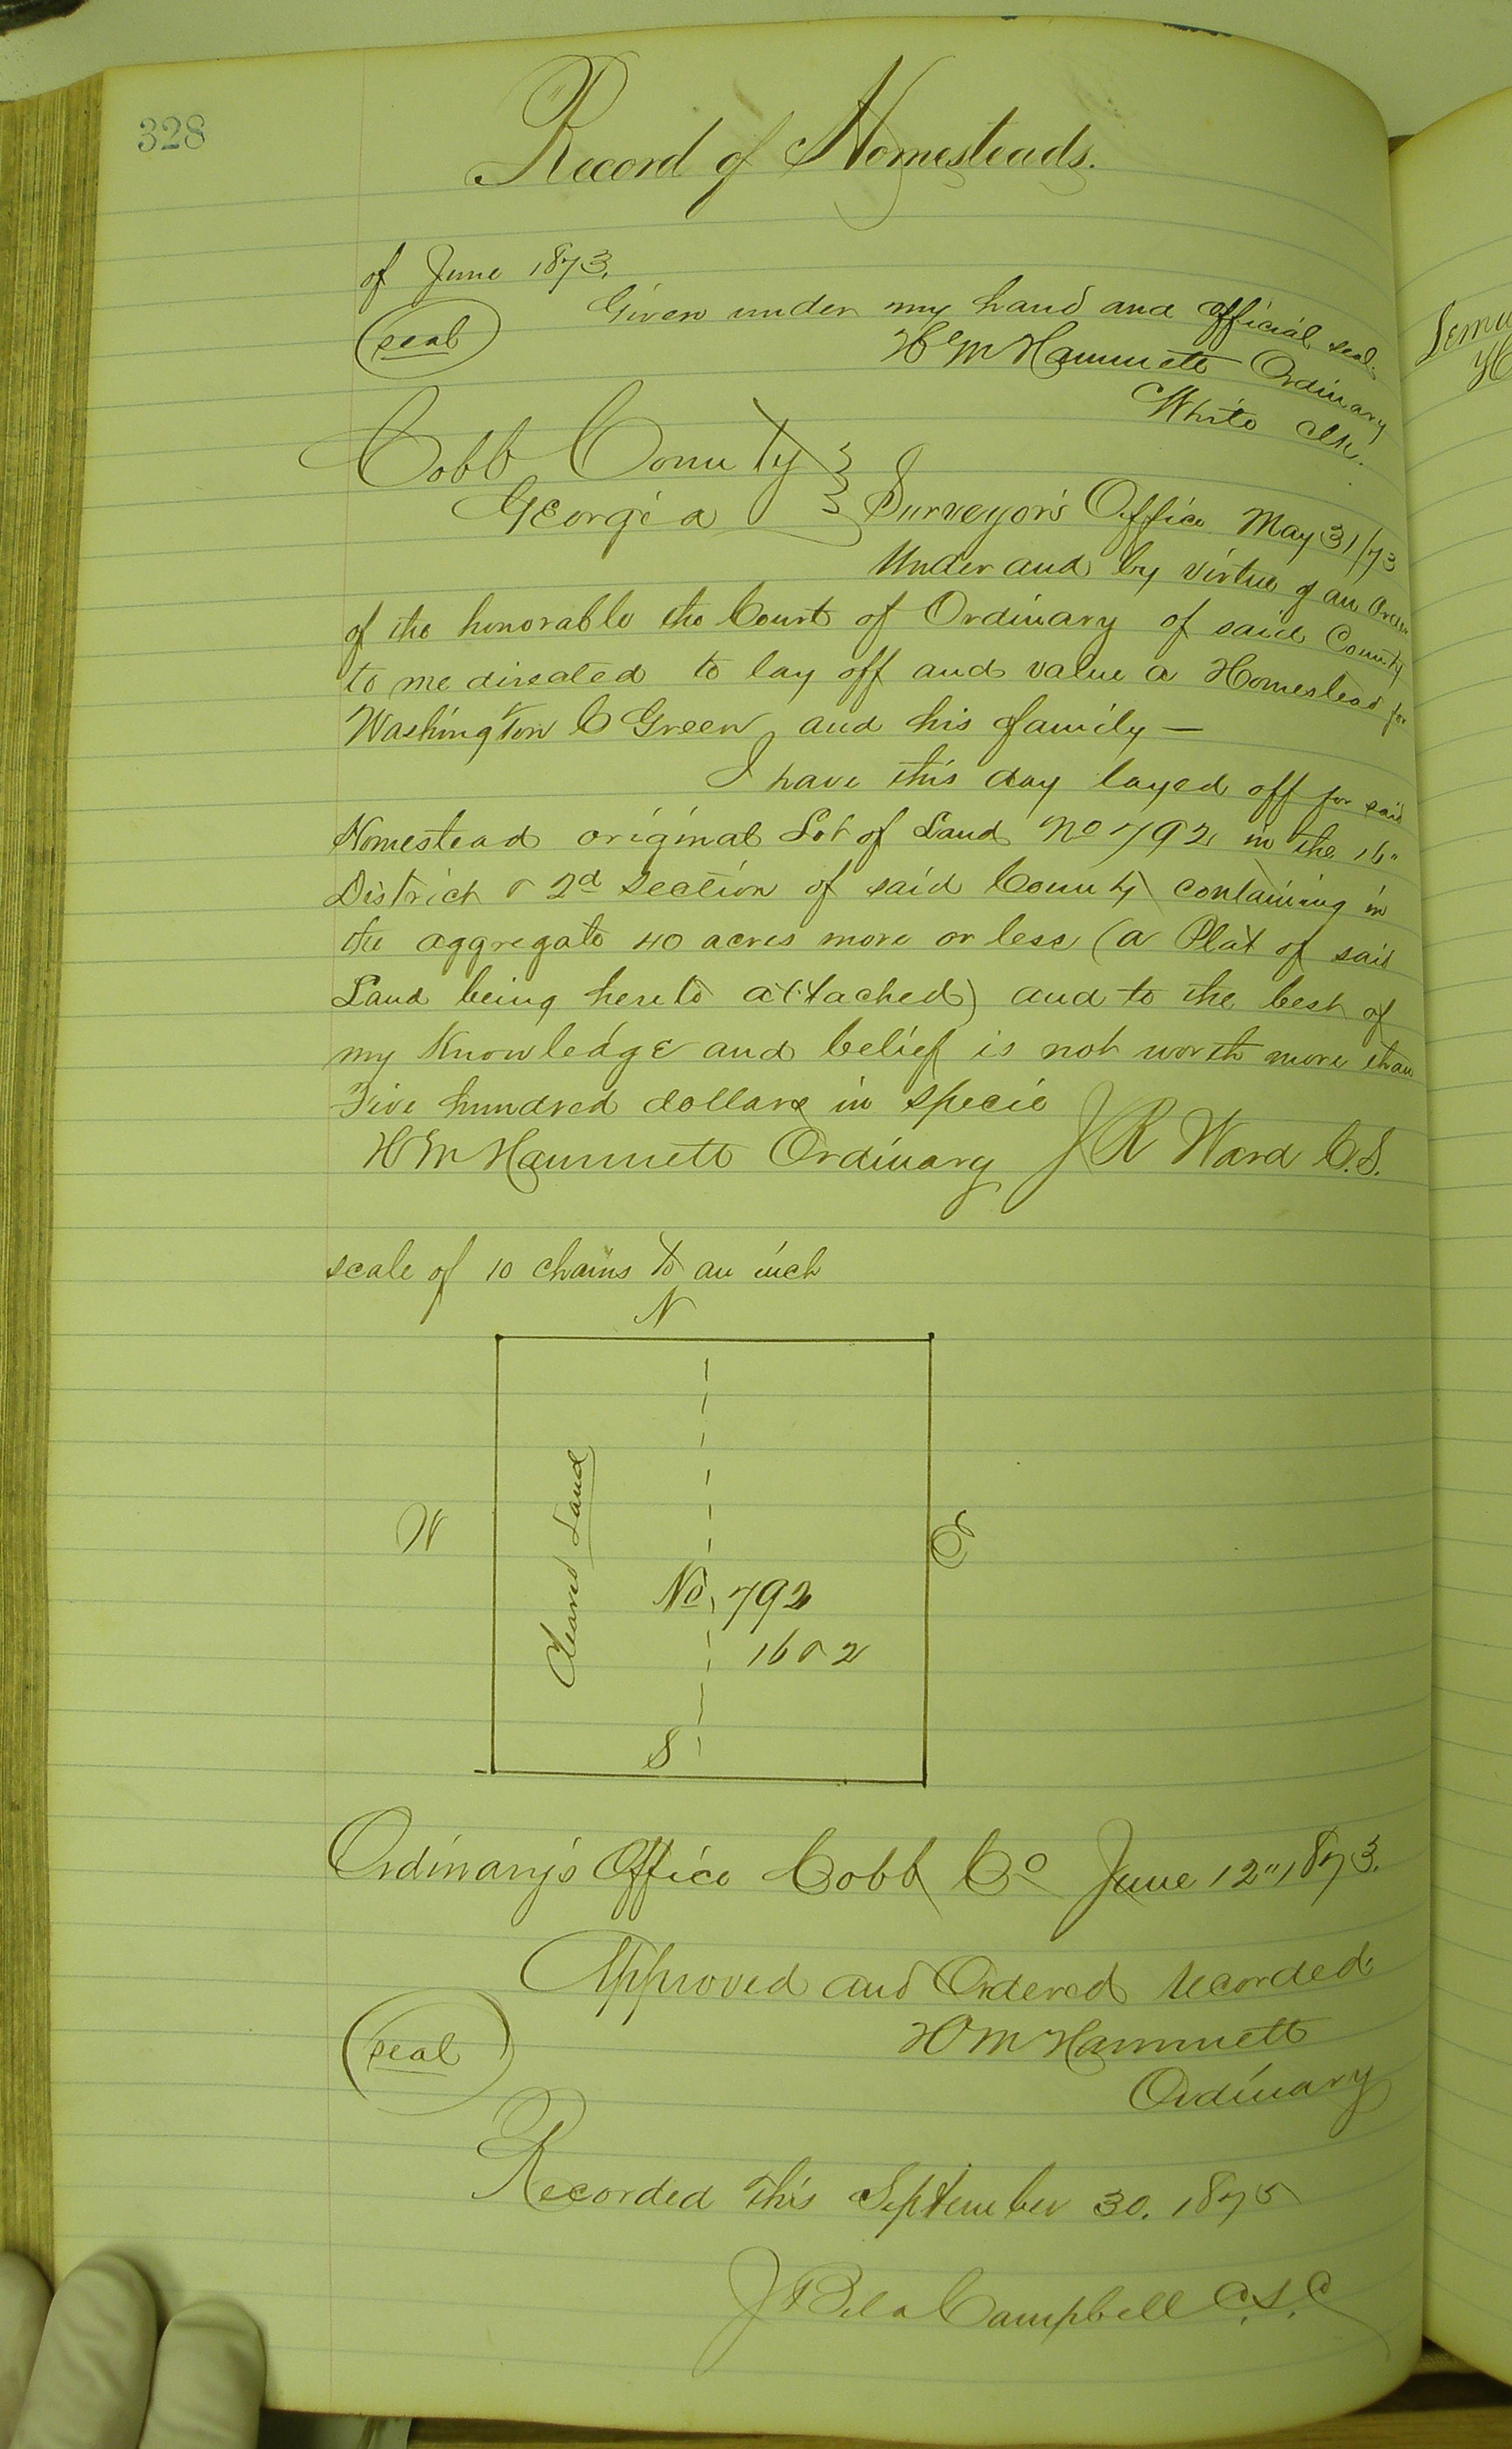 328
Record of Homesteads.
of June 1873.
Given under my hand and official seal.
seal
H M Hammett Ordinary
White Ink.
Cobb County
Georgia
Surveyor's Office May 31/73
Under and by virtue of an order
of the honorable the Court of Ordinary of said County
to me directed to lay off and value a Homestead for
Washington C Green and his family —
I have this day layed off for said
Homestead original Lot of Land No 792 in the 16"
District & 2d Section of said County containing in
the aggregate 40 acres more or less (a Plat of said
Land being hereto attached) and to the best of
my Knowledge and belief is not worth more than
Five hundred dollars in specie
H M Hammett Ordinary J R Ward C.S.
scale of 10 chains to an inch
N
W
Cleared Land
E
No. 792
16 & 2
S
Ordinary's Office Cobb Co June 12" 1873.
Approved and Ordered recorded
seal
H M Hammett
Ordinary
Recorded this September 30. 1875
J Bela Campbell C.S.C